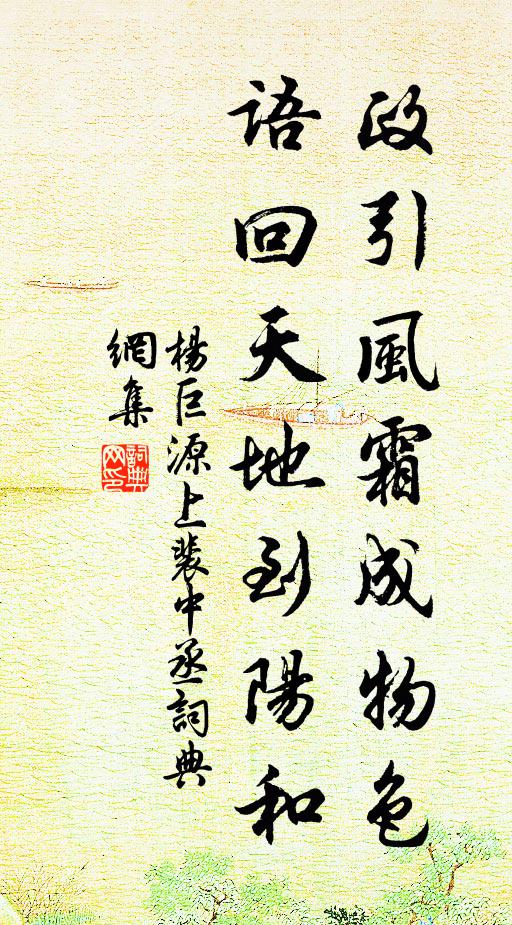 政引風霜成物色
語回天地到陽和
楊巨源上裴中丞詞典
網集
詞典
网印